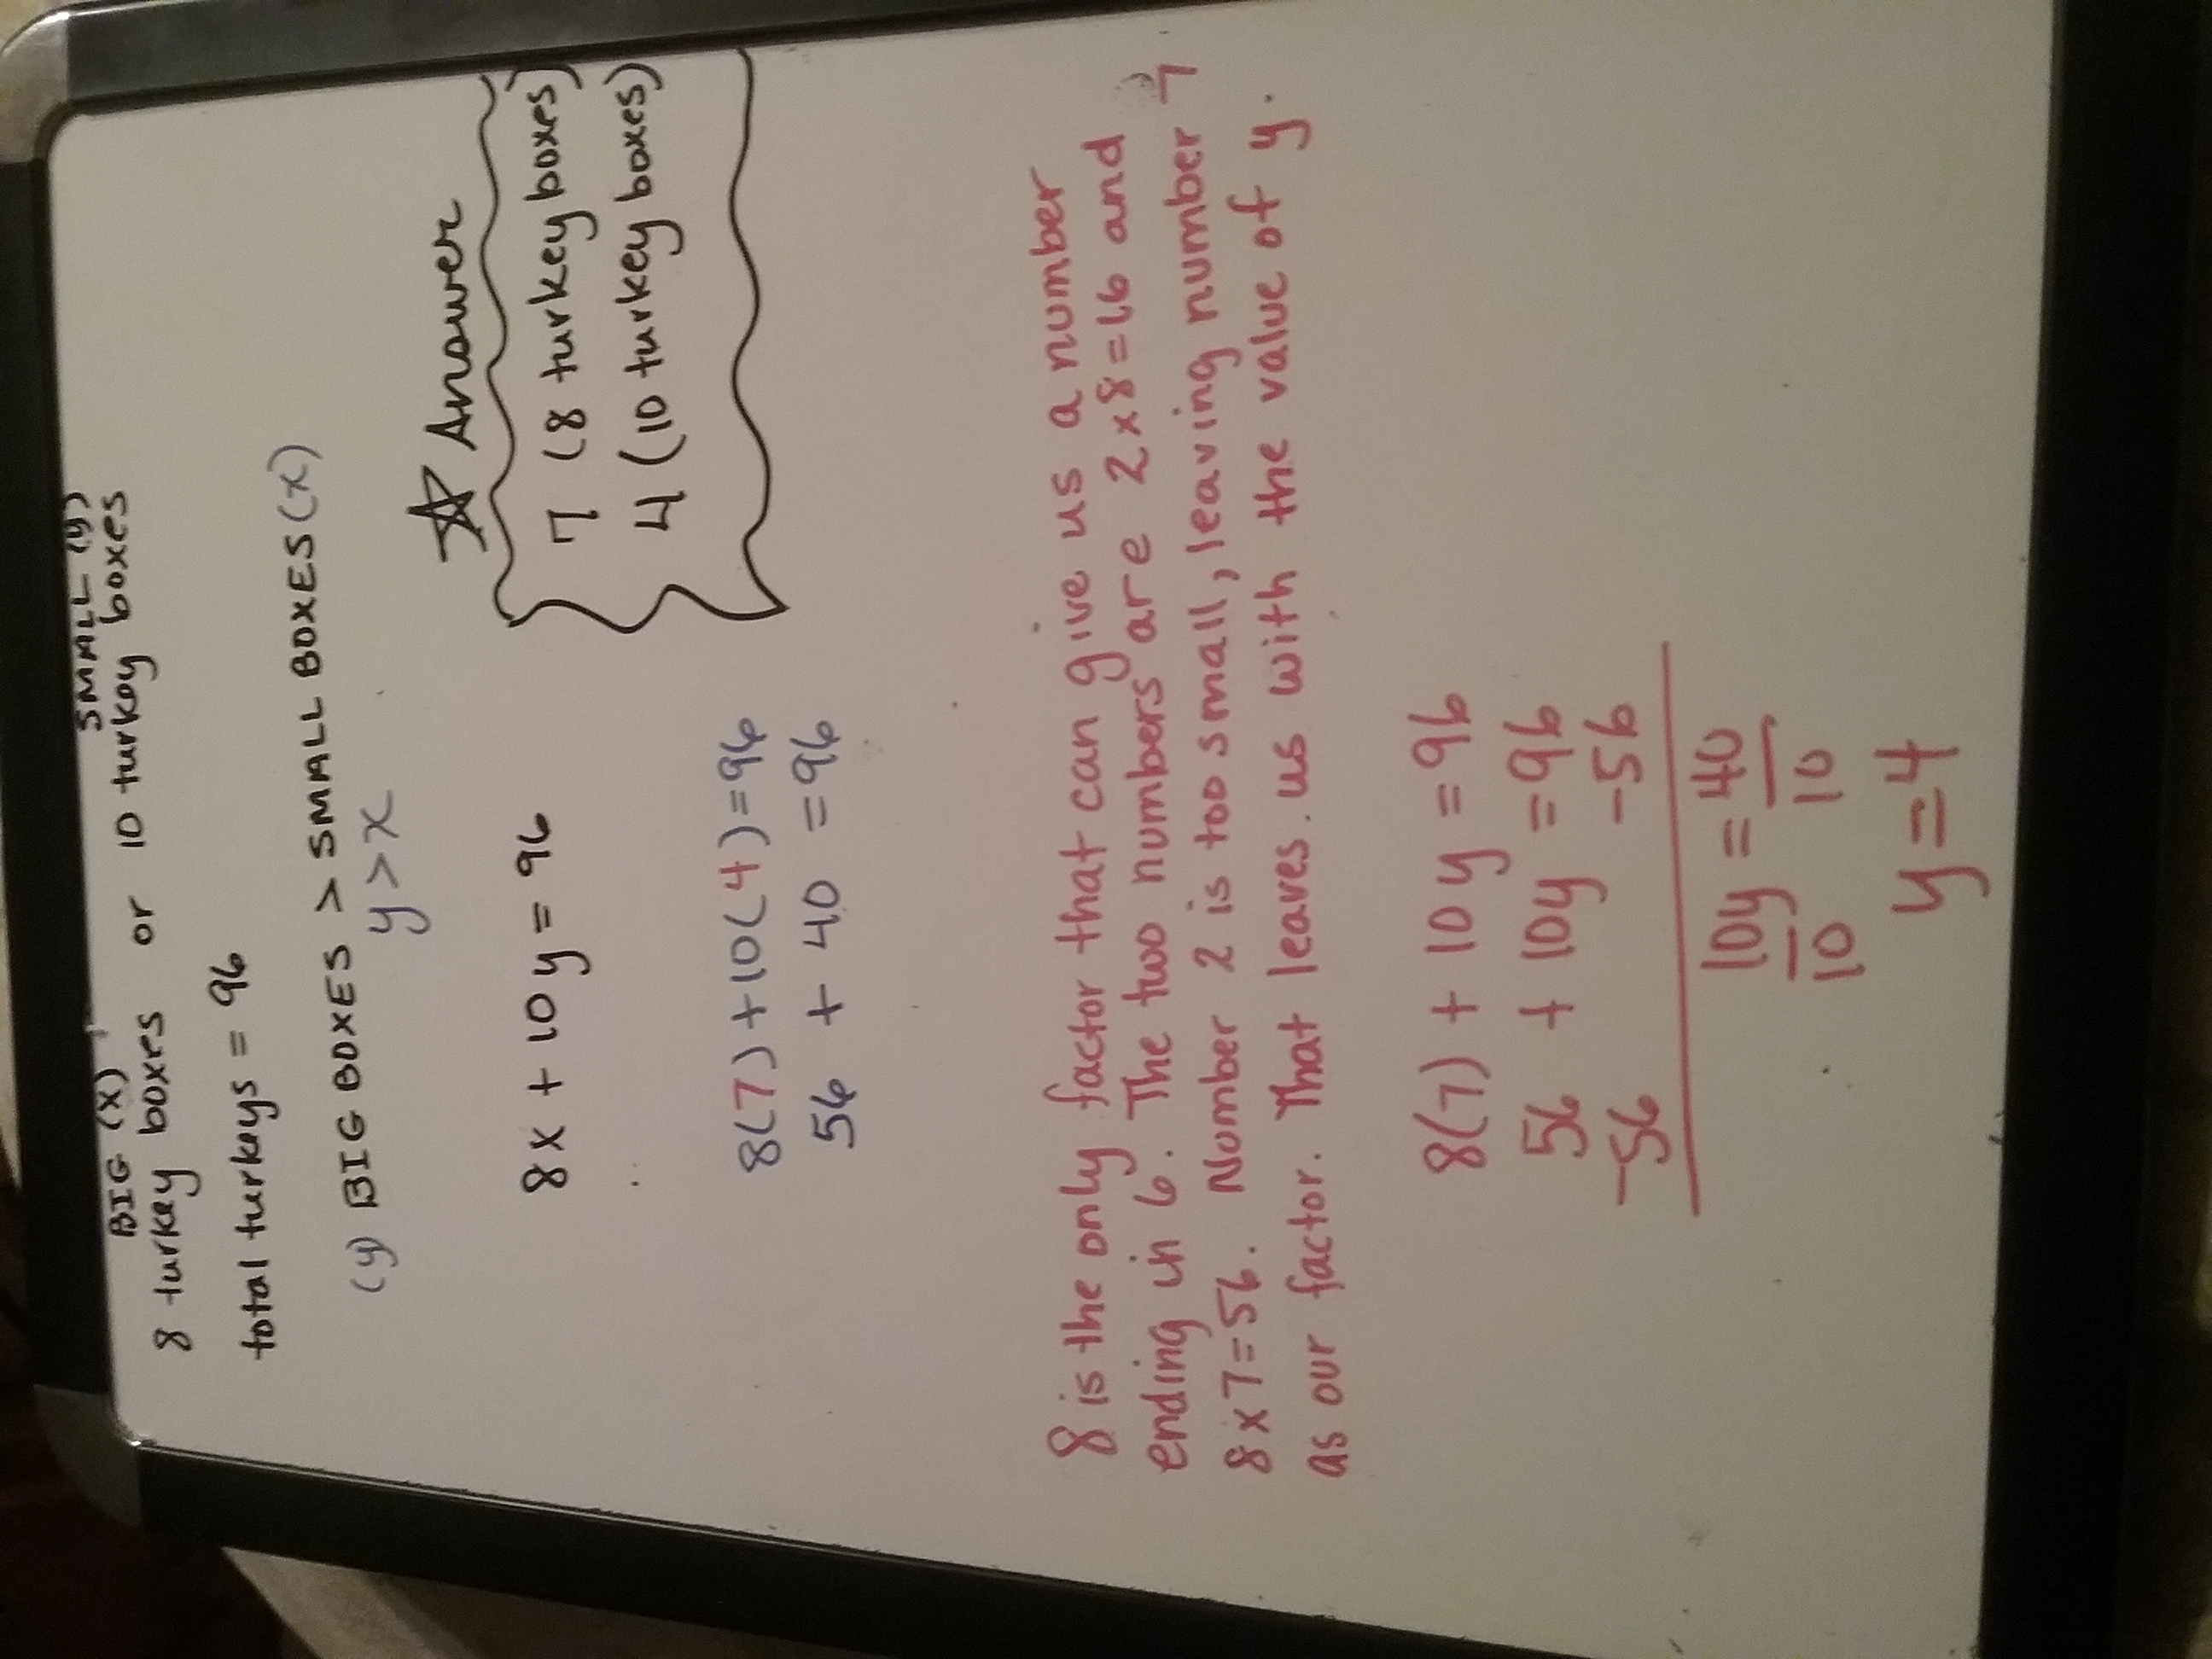 BIG (x) SMALL (y)
8 turkey boxes or 10 turkey boxes
total turkeys = 96
(y) BIG BOXES > SMALL BOXES (x)
y > x
☆ Answer
7 (8 turkey boxes)
4 (10 turkey boxes)
8x + 10y = 96
8(7) + 10(4) = 96
56 + 40 = 96
8 is the only factor that can give us a number
ending in 6. The two numbers are 2x8=16 and
8x7=56. Number 2 is too small, leaving number 7
as our factor. That leaves us with the value of y.
8(7) + 10y = 96
56 + 10y = 96
-56 -56
10y = 40
10 10
y = 4